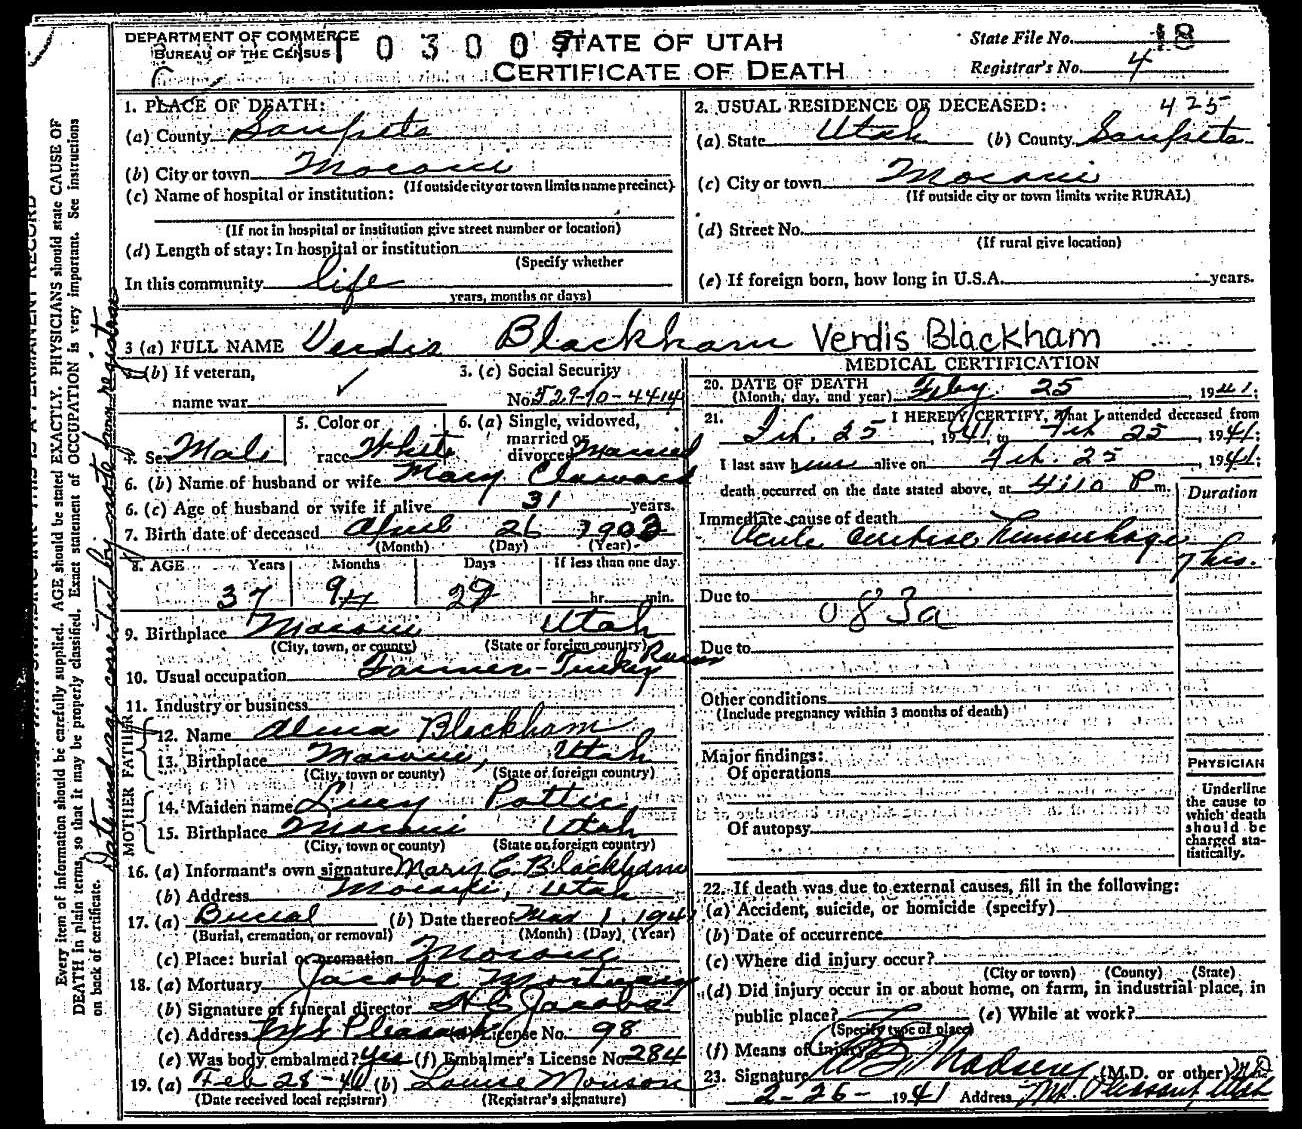 DEPARTMENT OF COMMERCE
BUREAU OF THE CENSUS
STATE OF UTAH
CERTIFICATE OF DEATH
State File No. 18
Registrar's No. 4
1. PLACE OF DEATH:
(a) County Sanpete
(b) City or town Moroni
(If outside city or town limits name precinct)
(c) Name of hospital or institution:
(If not in hospital or institution give street number or location)
(d) Length of stay: In hospital or institution
(Specify whether
In this community life
years, months or days)
2. USUAL RESIDENCE OF DECEASED: 425
(a) State Utah (b) County Sanpete
(c) City or town Moroni
(If outside city or town limits write RURAL)
(d) Street No.
(If rural give location)
(e) If foreign born, how long in U.S.A. years.
3 (a) FULL NAME Verdis Blackham Verdis Blackham
3 (b) If veteran,
name war
3. (c) Social Security
No. 529-10-4414
4. Sex Male
5. Color or
race White
6. (a) Single, widowed,
married or
divorced Married
6. (b) Name of husband or wife Mary
6. (c) Age of husband or wife if alive 31 years.
7. Birth date of deceased April 26 1903
(Month) (Day) (Year)
8. AGE Years Months Days If less than one day
37 9 29 hr. min.
9. Birthplace Moroni Utah
(City, town, or county) (State or foreign country)
10. Usual occupation Farmer - Turkey Raiser
11. Industry or business
FATHER
12. Name Alma Blackham
13. Birthplace Moroni, Utah
(City, town or county) (State or foreign country)
MOTHER
14. Maiden name Lucy
15. Birthplace Moroni Utah
(City, town or county) (State or foreign country)
16. (a) Informant's own signature Mary C. Blackham
(b) Address Moroni, Utah
17. (a) Burial (b) Date thereof Mar 1. 1941
(Burial, cremation, or removal) (Month) (Day) (Year)
(c) Place: burial or cremation Moroni
18. (a) Mortuary Jacobs Mortuary
(b) Signature of funeral director H C Jacobs
(c) Address Mt Pleasant (d) License No. 98
(e) Was body embalmed? yes (f) Embalmer's License No. 284
19. (a) Feb 28-41 (b) Louise Monson
(Date received local registrar) (Registrar's signature)
MEDICAL CERTIFICATION
20. DATE OF DEATH Feby 25, 1941.
(Month, day, and year)
21. I HEREBY CERTIFY, That I attended deceased from
Feb. 25, 1941, to Feb 25, 1941;
I last saw him alive on Feb. 25, 1941;
death occurred on the date stated above, at 4:10 P m.
Duration
Immediate cause of death
Acute Cerebral Hemorrhage
7 hrs.
Due to 083a
Due to
Other conditions
(Include pregnancy within 3 months of death)
Major findings:
Of operations
Of autopsy
PHYSICIAN
Underline
the cause to
which death
should be
charged sta-
tistically.
22. If death was due to external causes, fill in the following:
(a) Accident, suicide, or homicide (specify)
(b) Date of occurrence
(c) Where did injury occur?
(City or town) (County) (State)
(d) Did injury occur in or about home, on farm, in industrial place, in
public place? (e) While at work?
(Specify type of place)
(f) Means of injury
23. Signature Madsen (M.D. or other) MD
2-26-1941 Address Mt. Pleasant, Utah
Every item of information should be carefully supplied. AGE should be stated EXACTLY. PHYSICIANS should state CAUSE OF
DEATH in plain terms, so that it may be properly classified. Exact statement of OCCUPATION is very important. See instructions
on back of certificate.